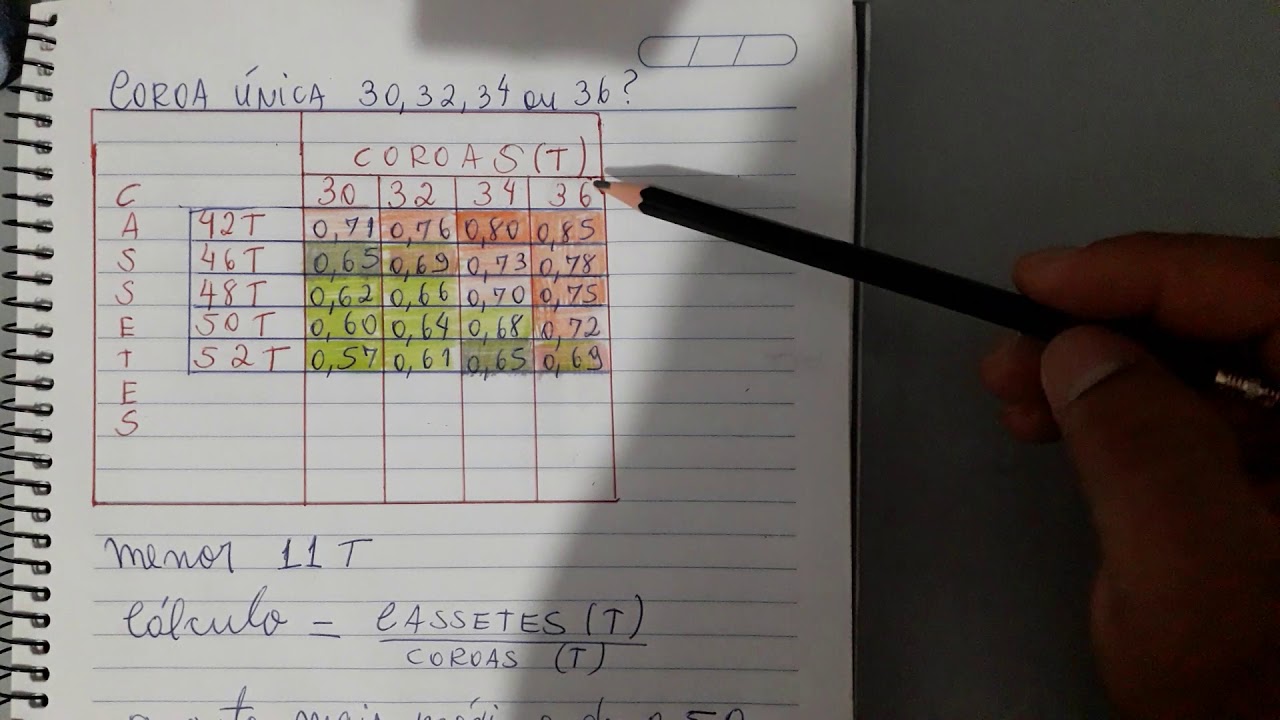 COROA ÚNICA 30, 32, 34 ou 36?
COROAS (T)
CASSETES
30 32 34 36
42T 0,71 0,76 0,80 0,85
46T 0,65 0,69 0,73 0,78
48T 0,62 0,66 0,70 0,75
50T 0,60 0,64 0,68 0,72
52T 0,57 0,61 0,65 0,69
menor 11T
Cálculo = CASSETES (T)
COROAS (T)
mais